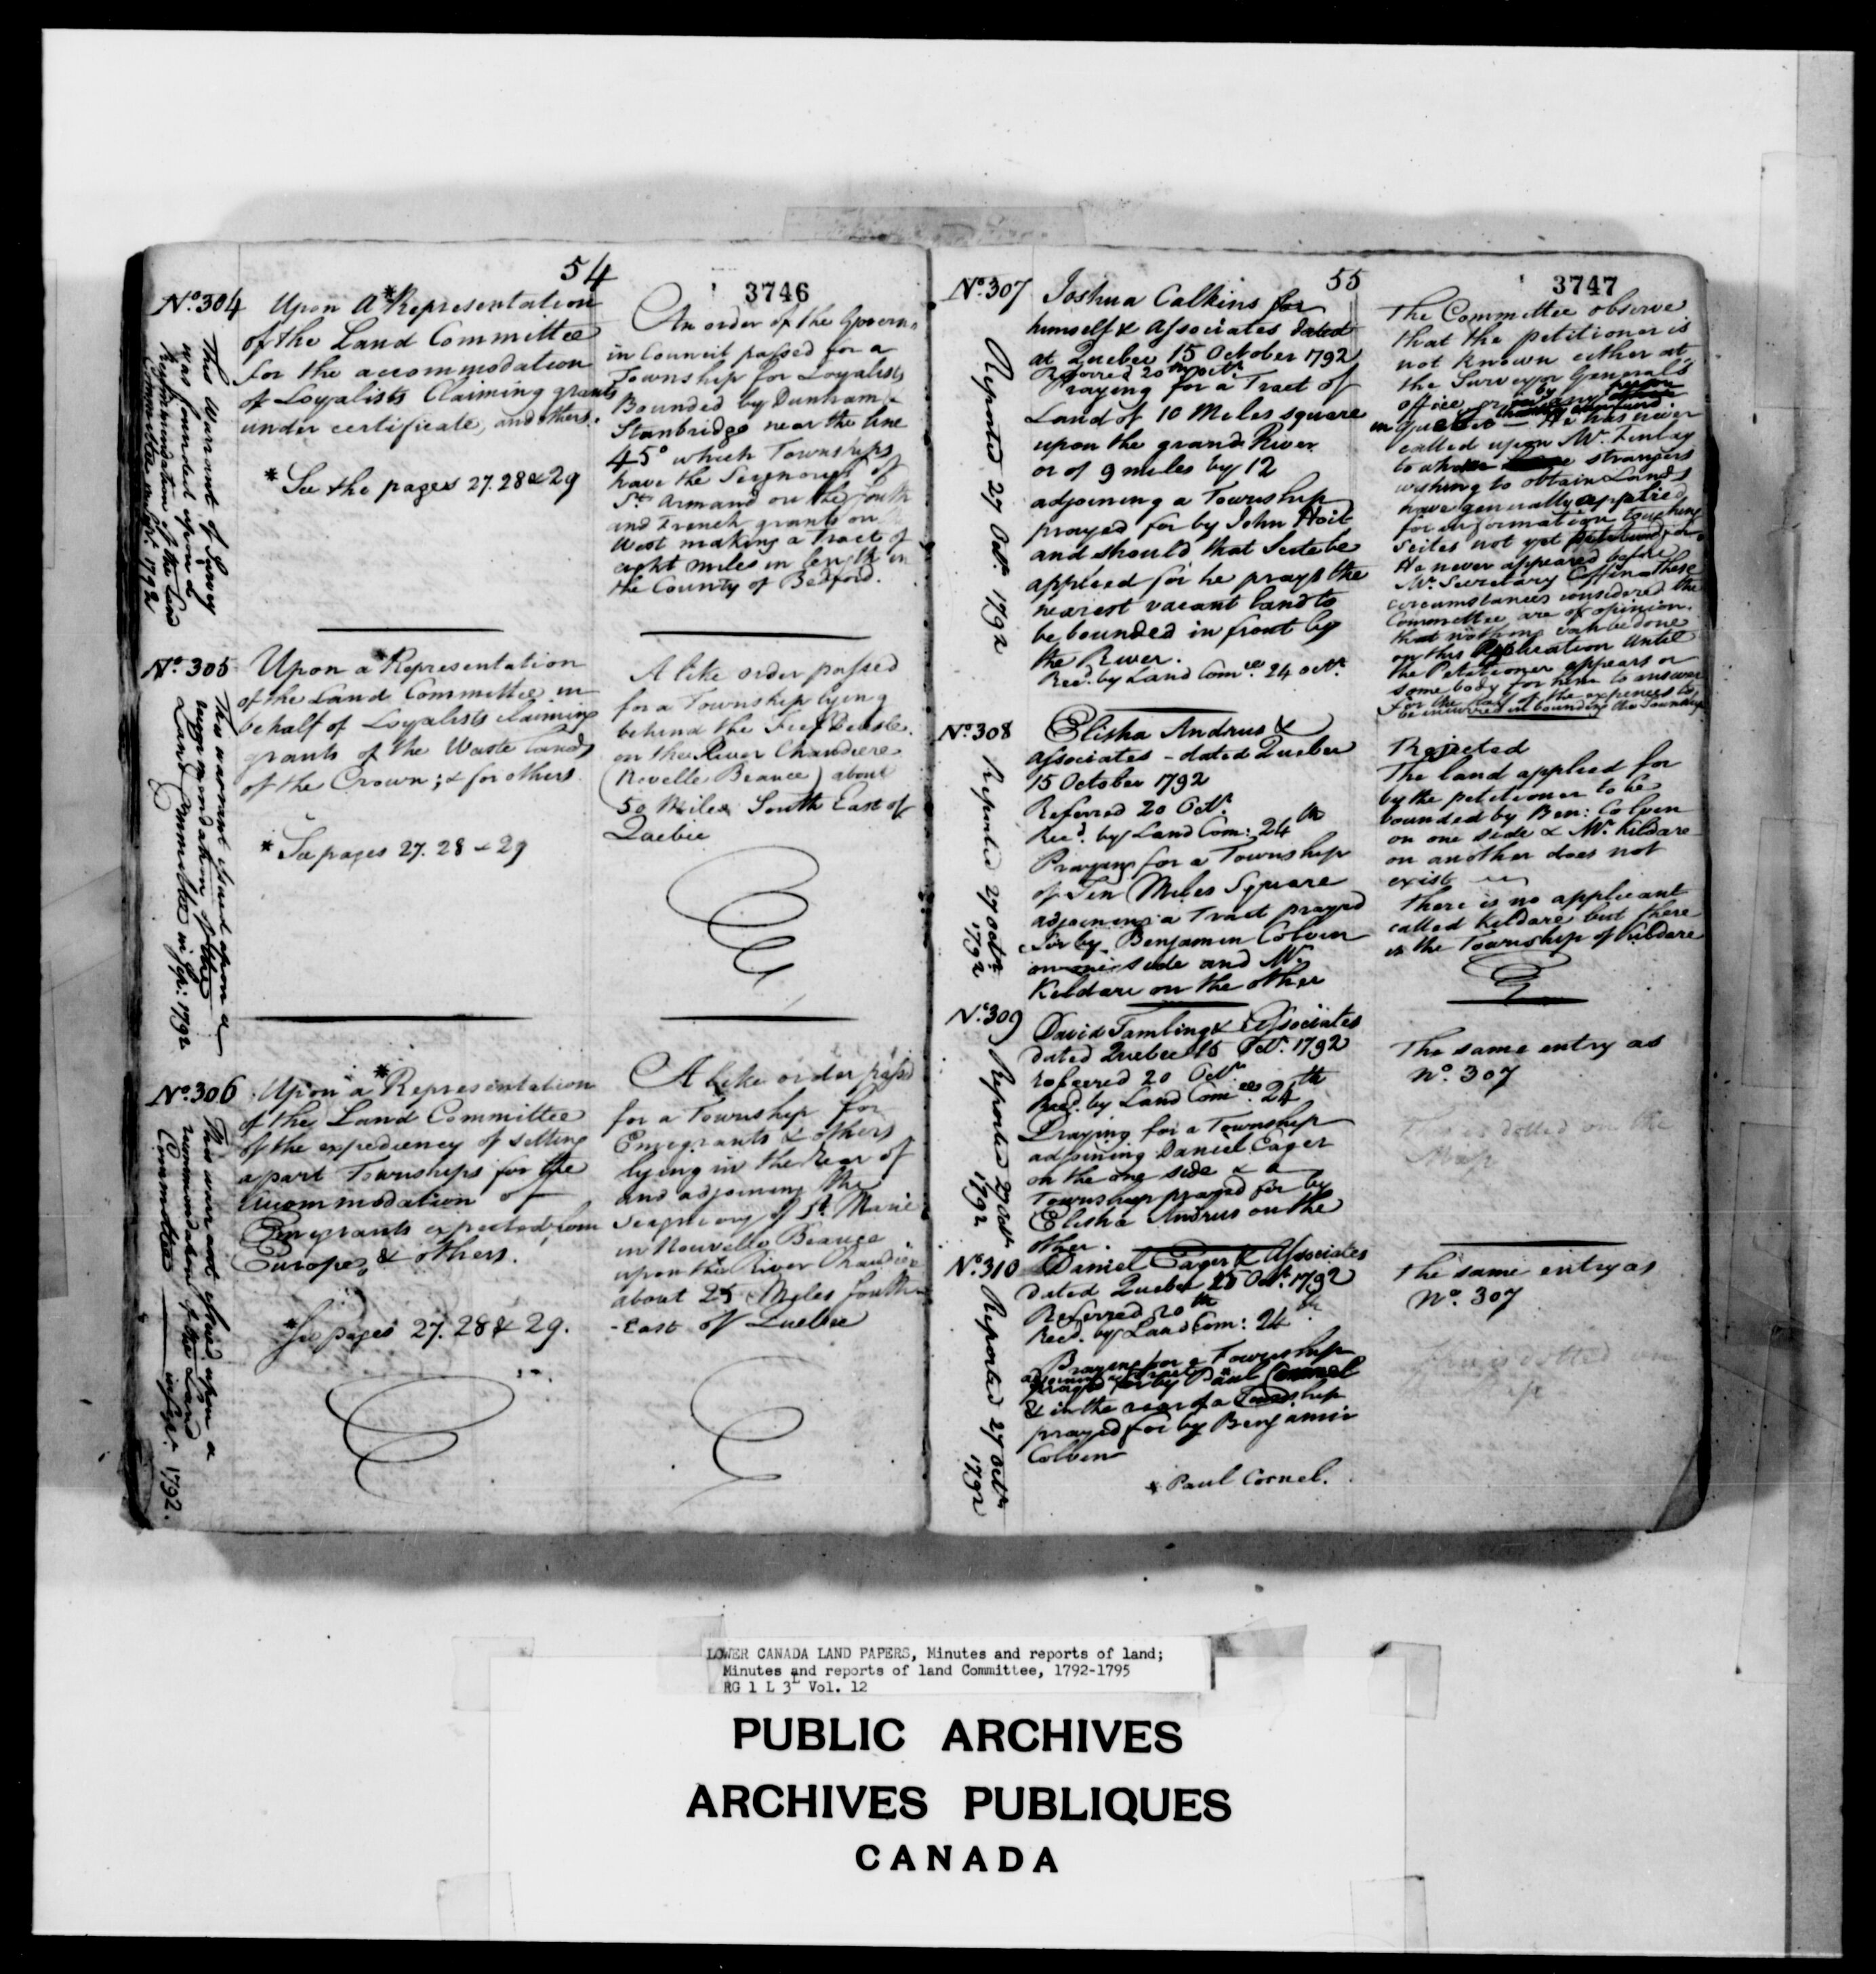 54
3746
Nº 304
Upon a *Representation
of the Land Committee
for the accommodation
of Loyalists Claiming grants
under certificate, and others.
* See the pages 27. 28 & 29
This Warrant of Survey
was founded upon a
Recommendation of the Land
Committee in Apr: 1792
An order of the Governr
in Council passed for a
Township for Loyalists
Bounded by Dunham &
Stanbridge near the line
45° which Townships
have the Seignory of
St Armand on the South
and French grants on
West making a tract of
eight miles in length in
the County of Bedford.
Nº 305
Upon a *Representation
of the Land Committee in
behalf of Loyalists claiming
grants of the Waste lands
of the Crown; & for others.
* See pages 27. 28 & 29
This warrant issued upon a
recommendation of the
Land Committee in Apr: 1792
A like order passed
for a Township lying
behind the Fief
on the River Chaudiere
(Novelle Beauce) about
50 Miles South East of
Quebec
Nº 306
Upon a *Representation
of the Land Committee
of the expediency of setting
apart Townships for the
accommodation of
Emigrants expected from
Europe, & others.
* See pages 27. 28 & 29.
This warrant issued upon a
recommendation of the Land
Committee in Apr: 1792.
A like order passd
for a Township for
Emigrants & others
lying in the Rear of
and adjoining the
Seigneory of St Marie
in Nouvelle Beauce
upon the River Chaudiere
about 25 Miles South
-East of Quebec
55
3747
Nº 307
Joshua Calkins for
himself & Associates dated
at Quebec 15 October 1792
Referred 20th Octr
Praying for a Tract of
Land of 10 Miles square
upon the grand River
or of 9 miles by 12
adjoining a Township
prayed for by John Hoit
and should that Scite be
applied for he prays the
nearest vacant land to
be bounded in front by
the River.
Recd. by Land Comee 24 octr.
Reported 27 Octr. 1792
The Committee observe
that the petitioner is
not known either at
the Surveyor Generals
office or by any person
in Quebec — He has never
called upon Mr. Finlay
to whom strangers
wishing to obtain Lands
have generally applied
for information touching
Scites not yet
He never appeared before
Mr. Secretary Coffin these
circumstances considered the
Committee are of opinion
that nothing can be done
on this Application until
the Petitioner appears or
some body for him to answer
for the of the expences to
be incurred in bounding the Township
Nº 308
Elisha Andrus &
Associates - dated Quebec
15 October 1792
Referred 20 Octr.
Recd. by Land Com: 24th
Praying for a Township
of Ten Miles Square
adjoining a Tract prayed
for by Benjamin Colven
on one side and Mr.
Kildare on the other
Reported 27 Octr.
1792
Rejected
The land applied for
by the petitioner to be
bounded by Ben: Colven
on one side & Mr. Kildare
on another does not
exist
there is no applicant
called Kildare but there
is the Township of Kildare
Nº 309
David Tamling & Associates
dated Quebec 15 Octr. 1792
referred 20 Octr
Recd. by Land Comee. 24th
Praying for a Township
adjoining Daniel Eager
on the one side & a
Township prayed for by
Elisha Andrus on the
other.
Reported 27 Octr
1792
The same entry as
Nº. 307
This is dotted on the
Map
Nº 310
Daniel Eager & Associates
dated Quebec 15 Octr. 1792
Referred 20th
Recd. by Land Com: 24th
Praying for a Township
adjoining a Tract
prayed for by Paul *Cornel
& in the rear of a Township
prayed for by Benjamin
Colven
* Paul Cornel.
Reported 27 Octr
1792
The same entry as
Nº. 307
This is dotted on
LOWER CANADA LAND PAPERS, Minutes and reports of land;
Minutes and reports of land Committee, 1792-1795
RG 1 L 3L Vol. 12
PUBLIC ARCHIVES
ARCHIVES PUBLIQUES
CANADA